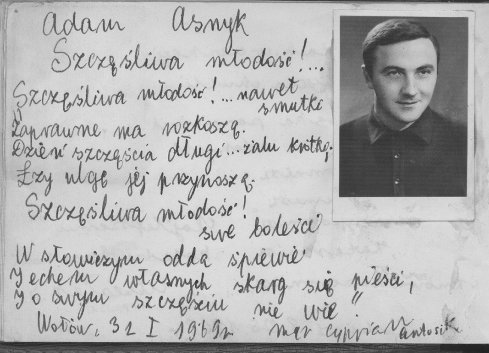 Adam Asnyk
Szczęśliwa młodość!...
Szczęśliwa młodość!... nawet
smutki
Zaprawne ma rozkoszą.
Dzień szczęścia długi... żalu krótki;
Łzy ulgę jej przynoszą.
Szczęśliwa młodość!
swe boleści
W słowiczym odda śpiewie
I echem własnych skarg się pieści,
I o swym szczęściu nie wie".
Wołów, 31 I 1969r mgr Cyprian Antosik